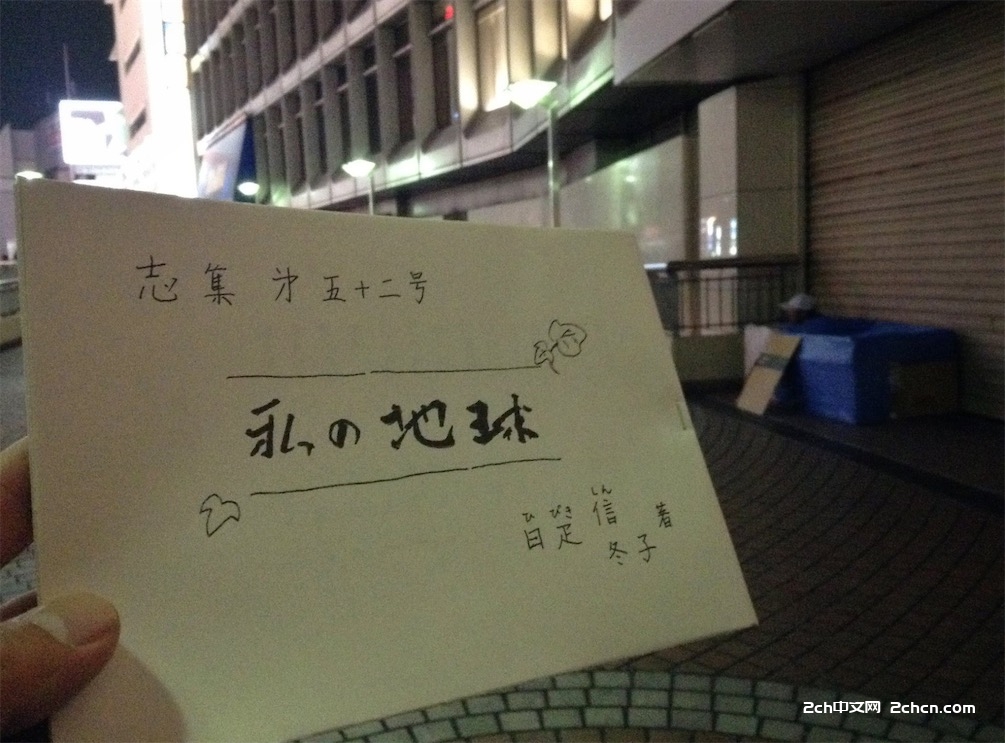 志集 第五十二号
私の地球
ひ びき しん
日疋 信 著
冬子
2ch中文网 2chcn.com